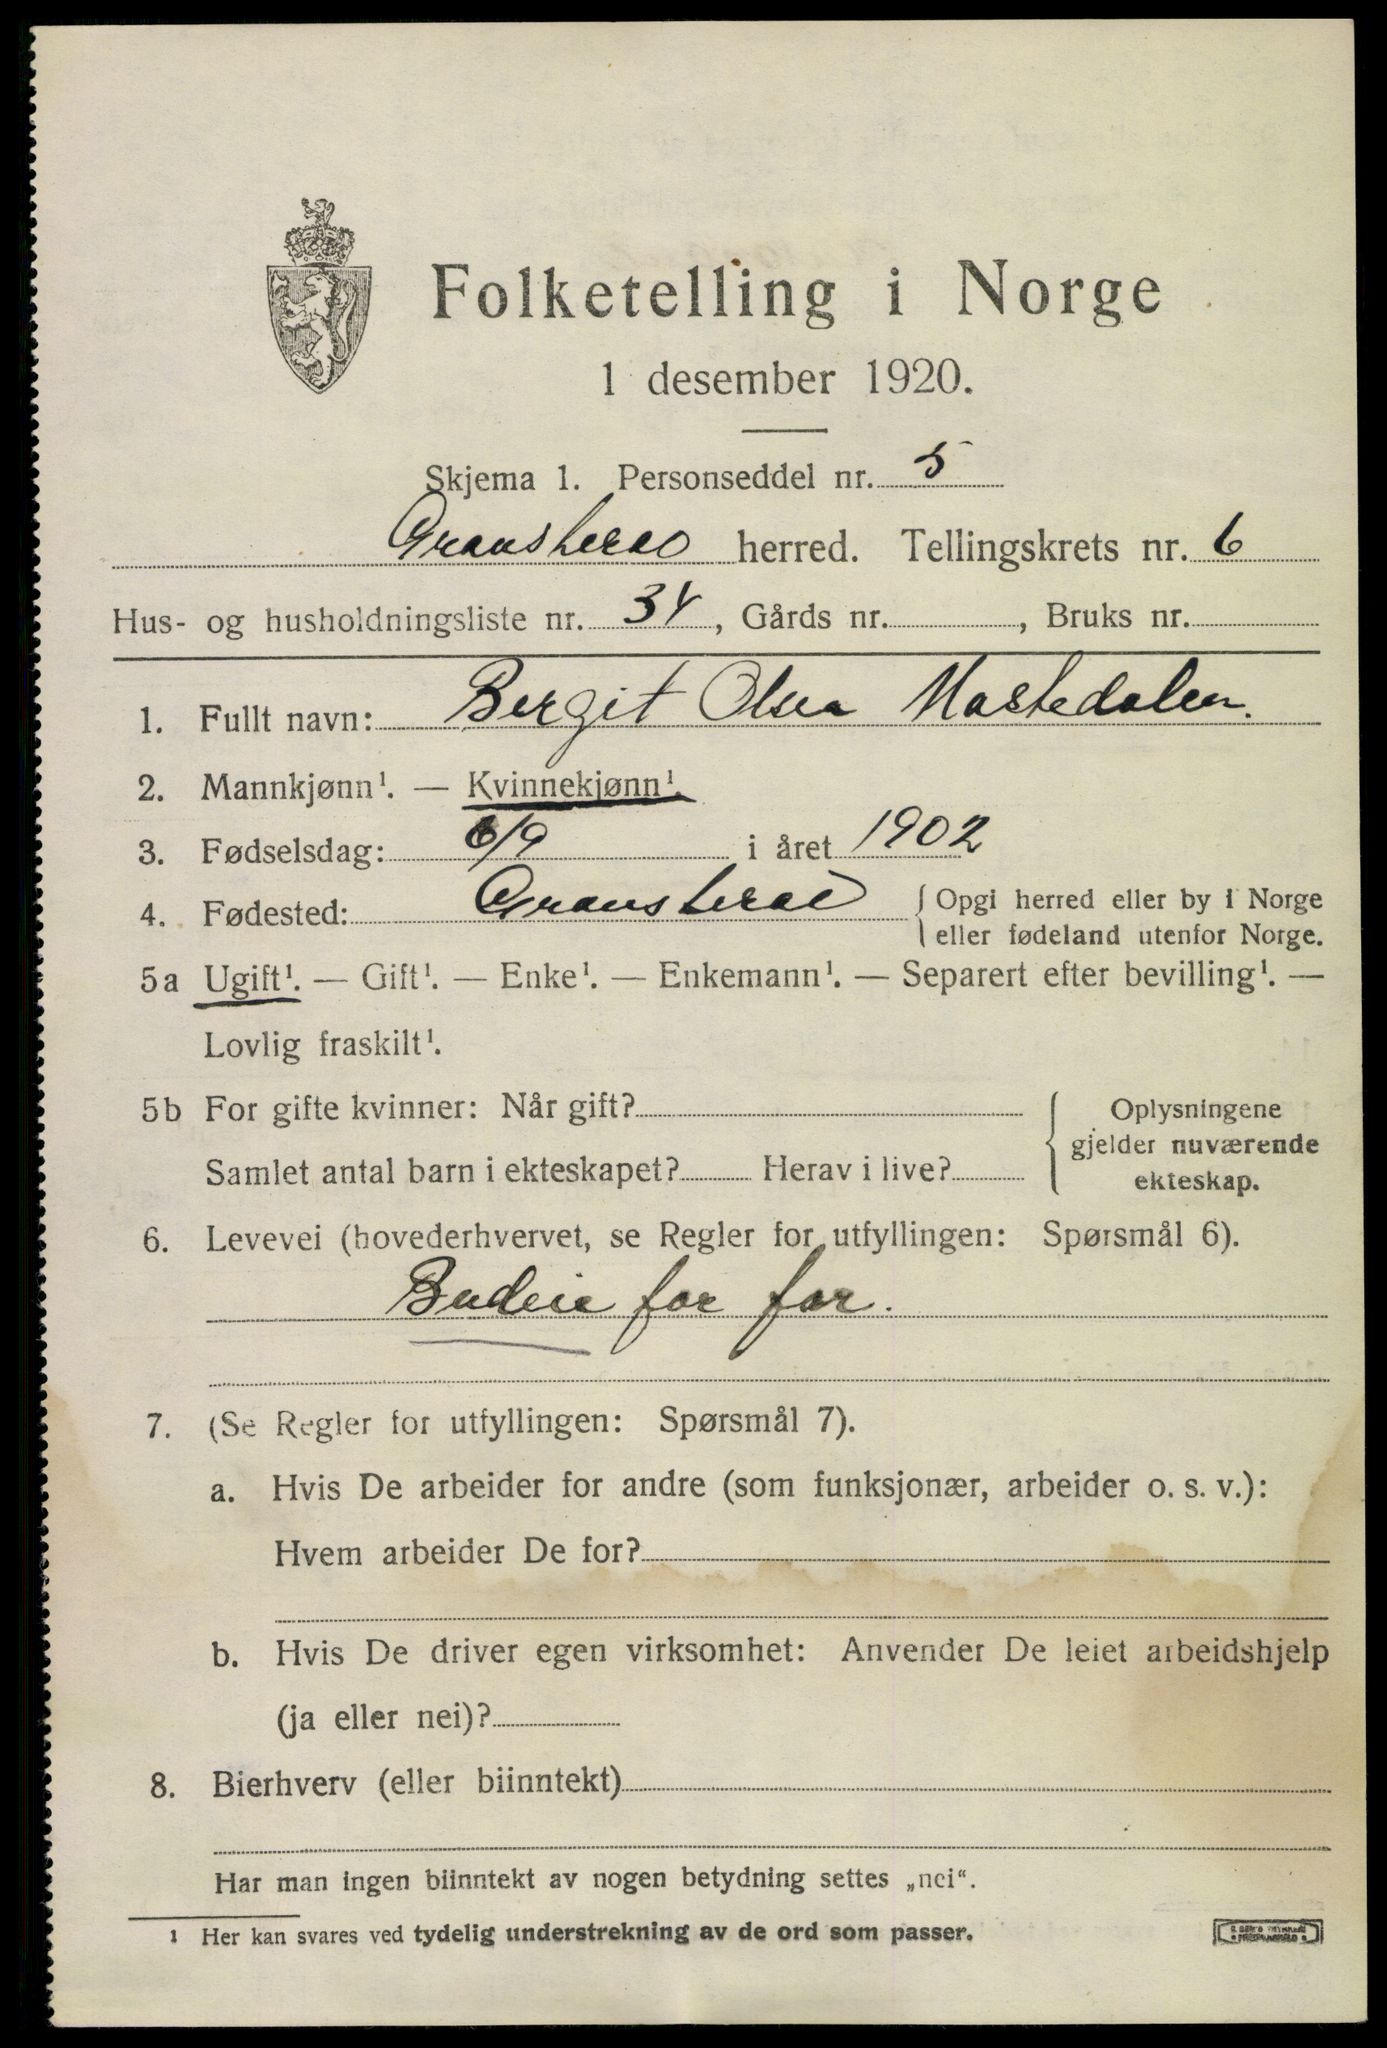 Folketelling i Norge
1 desember 1920.
Skjema 1. Personseddel nr. 5
Gransherad herred. Tellingskrets nr. 6
Hus- og husholdningsliste nr. 34, Gårds nr. , Bruks nr.
1. Fullt navn: Bergit Olsen Mastedalen.
2. Mannkjønn¹. — Kvinnekjønn¹.
3. Fødselsdag: 6/9 i året 1902
4. Fødested: Gransherad { Opgi herred eller by i Norge
eller fødeland utenfor Norge.
5a Ugift¹. — Gift¹. — Enke¹. — Enkemann¹. — Separert efter bevilling¹. —
Lovlig fraskilt¹.
5b For gifte kvinner: Når gift? { Oplysningene
gjelder nuværende
Samlet antal barn i ekteskapet? Herav i live? ekteskap.
6. Levevei (hovederhvervet, se Regler for utfyllingen: Spørsmål 6).
Budeie for far.
7. (Se Regler for utfyllingen: Spørsmål 7).
a. Hvis De arbeider for andre (som funksjonær, arbeider o. s. v.):
Hvem arbeider De for?
b. Hvis De driver egen virksomhet: Anvender De leiet arbeidshjelp
(ja eller nei)?
8. Bierhverv (eller biinntekt)
Har man ingen biinntekt av nogen betydning settes „nei“.
¹ Her kan svares ved tydelig understrekning av de ord som passer.